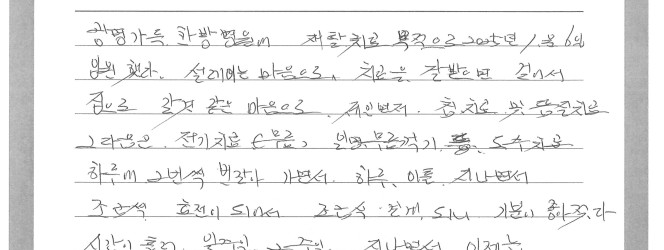 광명가득 한방병원에 재활치료 목적으로 2025년 1월 6일
입원 했다. 설레이는 마음으로, 치료을 잘받으면 걸어서
집으로 갈것 같은 마음으로. 제일먼저. 침치료 및 물질치료
그다음은 전기치료 무릎, 도수치료
하루에 2번씩 번갈아 가면서. 하루, 이틀, 지나면서
조금씩 호전이 되어서 조금씩 걷게, 되니 기분이 좋아졌다
시간이 흘러 일주일 지나면서 이제는